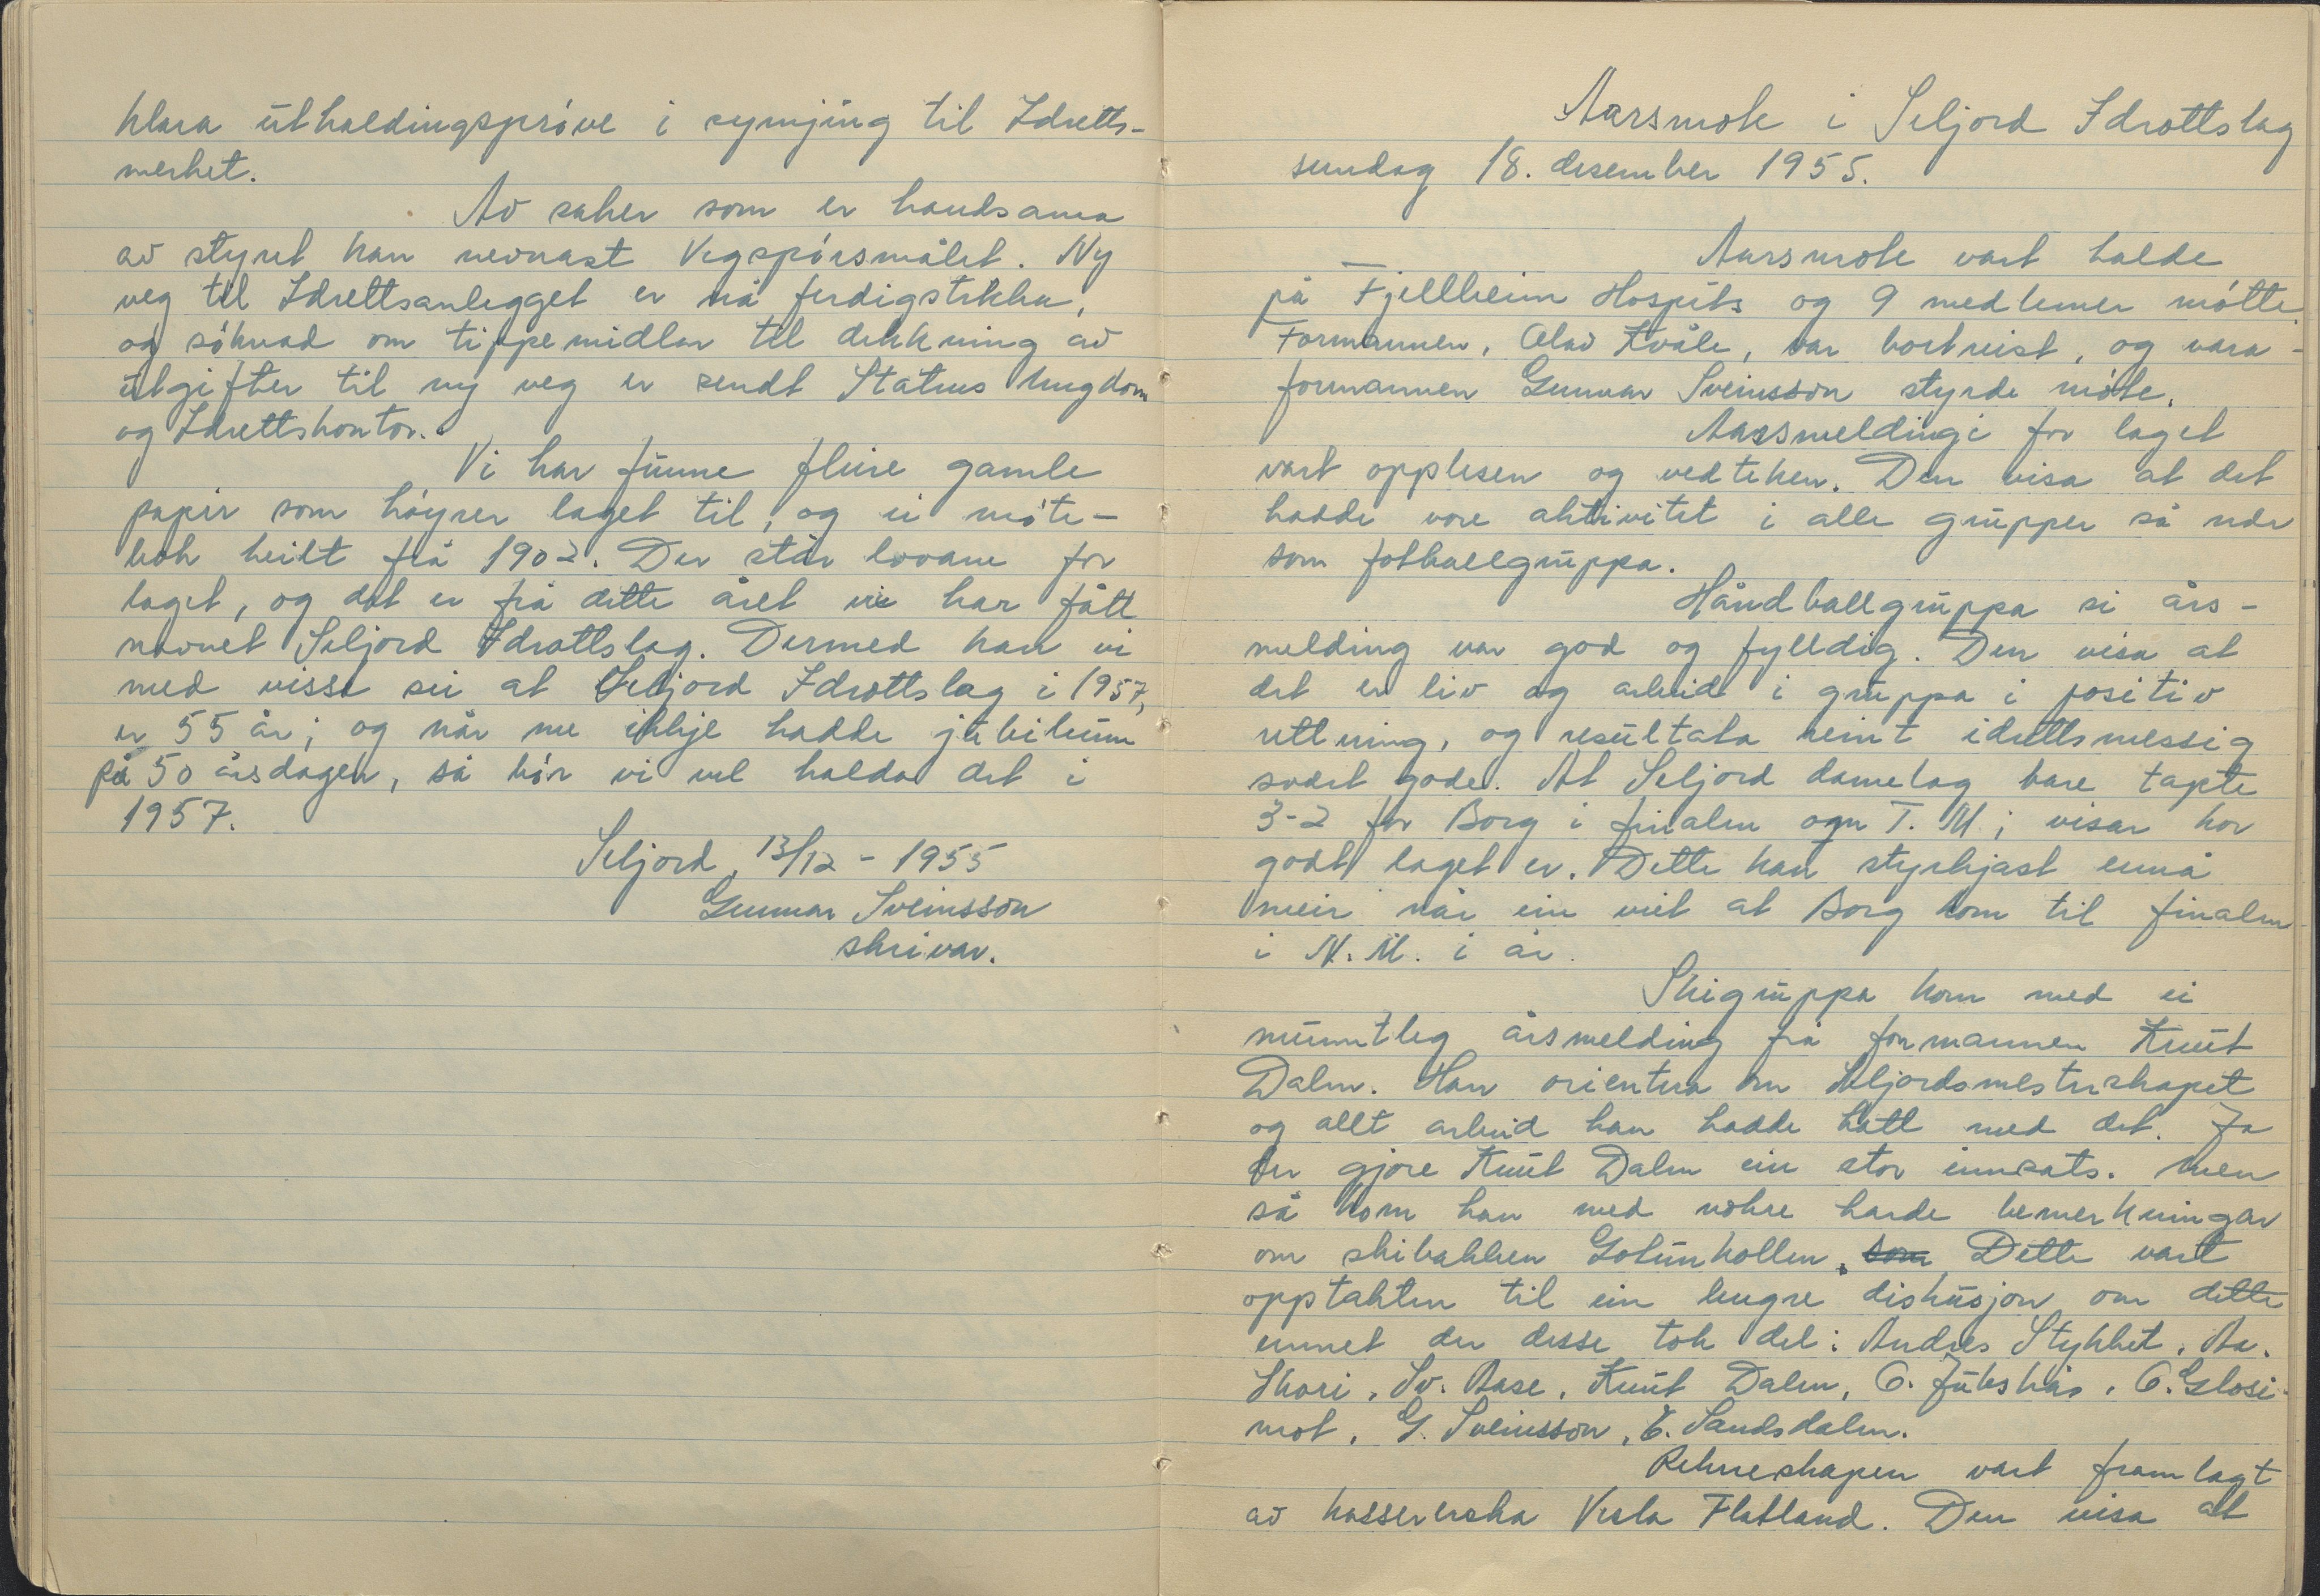 klara uthaldingsprøve i symjing til Idretts-
merket.
Av saker som er handsama
av styret kan nevnast Vegspørsmålet. Ny
veg til Idrettsanlegget er nå ferdigstikka,
og søknad om tippemidlar til dekkning av
utgifter til ny veg er sendt Statens Ungdom
og Idrettskontor.
Vi har funne fleire gamle
papir som høyrer laget til, og ei møte-
bok heilt frå 1902. Der står lovane for
laget, og det er frå dette året vi har fått
navnet Seljord Idrottslag. Dermed kan vi
med visse sei at Seljord Idrottslag i 1957,
er 55 år; og når me ikkje hadde jubileum
på 50 årsdagen, så bør vi vel halda det i
1957.
Seljord, 13/12 - 1955
Gunnar Sveinsson
skrivar.
Aarsmøte i Seljord Idrottslag
sundag 18. desember 1955.
Aarsmøte vart halde
på Fjellheim Hospits og 9 medlemer møtte.
Formannen, Olav Kvåle, var bortreist, og vara-
formannen Gunnar Sveinsson styrde møte.
Aarsmeldingi for laget
vart opplesen og vedteken. Den visa at det
hadde vore aktivitet i alle grupper så nær
som fotballgruppa.
Håndballgruppa si års-
melding var god og fylldig. Den visa at
det er liv og arbeid i gruppa i positiv
rettning, og resultata reint idrettsmessig
svært gode. At Seljord damelag bare tapte
3-2 for Borg i finalen om T.M.; visar hor
godt laget er. Dette kan styrkjast ennå
meir når ein veit at Borg kom til finalen
i N.M. i år.
Skigruppa kom med ei
munntleg årsmelding frå formannen Knut
Dalen. Han orientera om Seljordsmesterskapet
og allt arbeid han hadde hatt med det. Ja
her gjøre Knut Dalen ein stor innsats. Men
så kom han med nokre harde bemerkningar
om skibakken Golinkollen. som Dette vart
opptakten til ein lengre diskusjon om dette
emnet der desse tok del: Andres Stykket, Aa.
Skori, Sv. Aase, Knut Dalen, O. Juvskås, O. Glosi-
mot, G. Sveinsson, E. Sandsdalen.
Rekneskapen vart framlagt
av kassererska Vesla Flatland. Den visa at